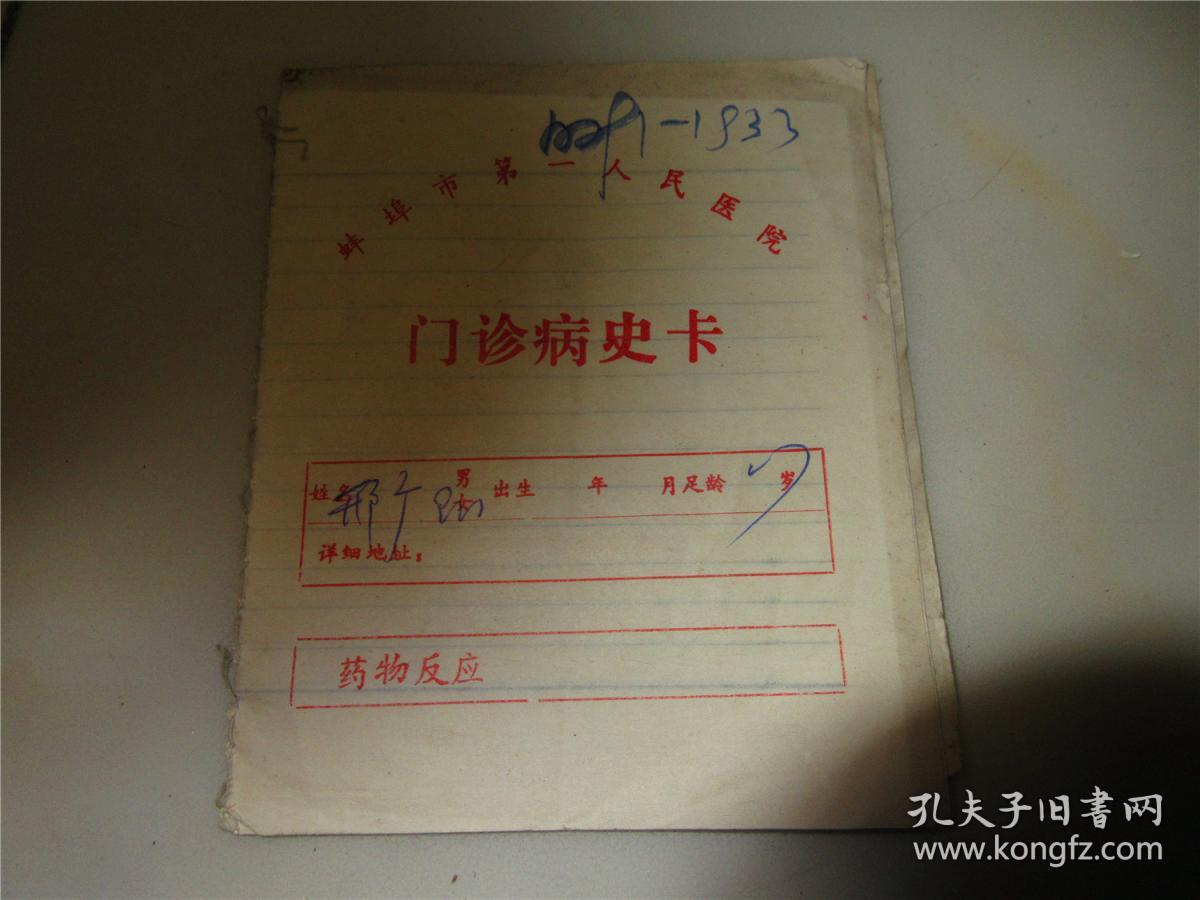 -1933
蚌埠市第一人民医院
门诊病史卡
姓名 邢广 男 女 出生 年 月足龄 岁
详细地址：
药物反应
孔夫子旧书网
www.kongfz.com